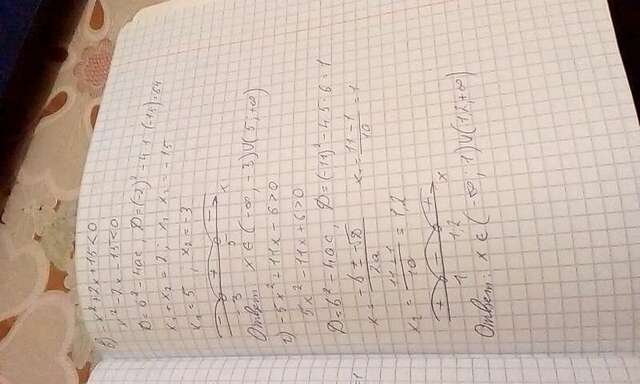 в) -x²+2x+15<0
x²-2x-15<0
D=b²-4ac, D=(-2)²-4·1·(-15)=64
x₁+x₂=2; x₁ x₂=-15
x₁=5, x₂=-3
-3 5 x
Ответ: x∈(-∞;-3)∪(5;+∞)
г) -5x²+11x-6>0
5x²-11x+6>0
D=b²-4ac, D=(-11)²-4·5·6=1
x=(-b±√D)/2a x₁=(11-1)/10=1
x₂=(11+1)/10=1,2
+ - + x
1 1,2
Ответ: x∈(-∞;1)∪(1,2;+∞)